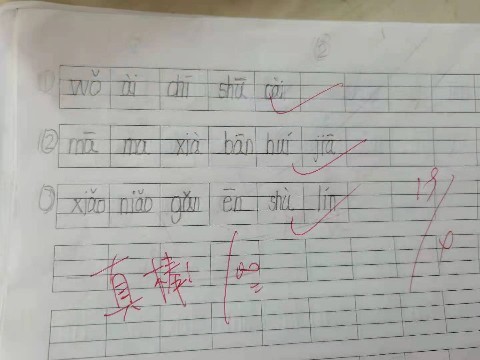 ① wǒ ài chī shū cài
② mā ma xià bān huí jiā
③ xiǎo niǎo gǎn ēn shù lín
真棒! 100